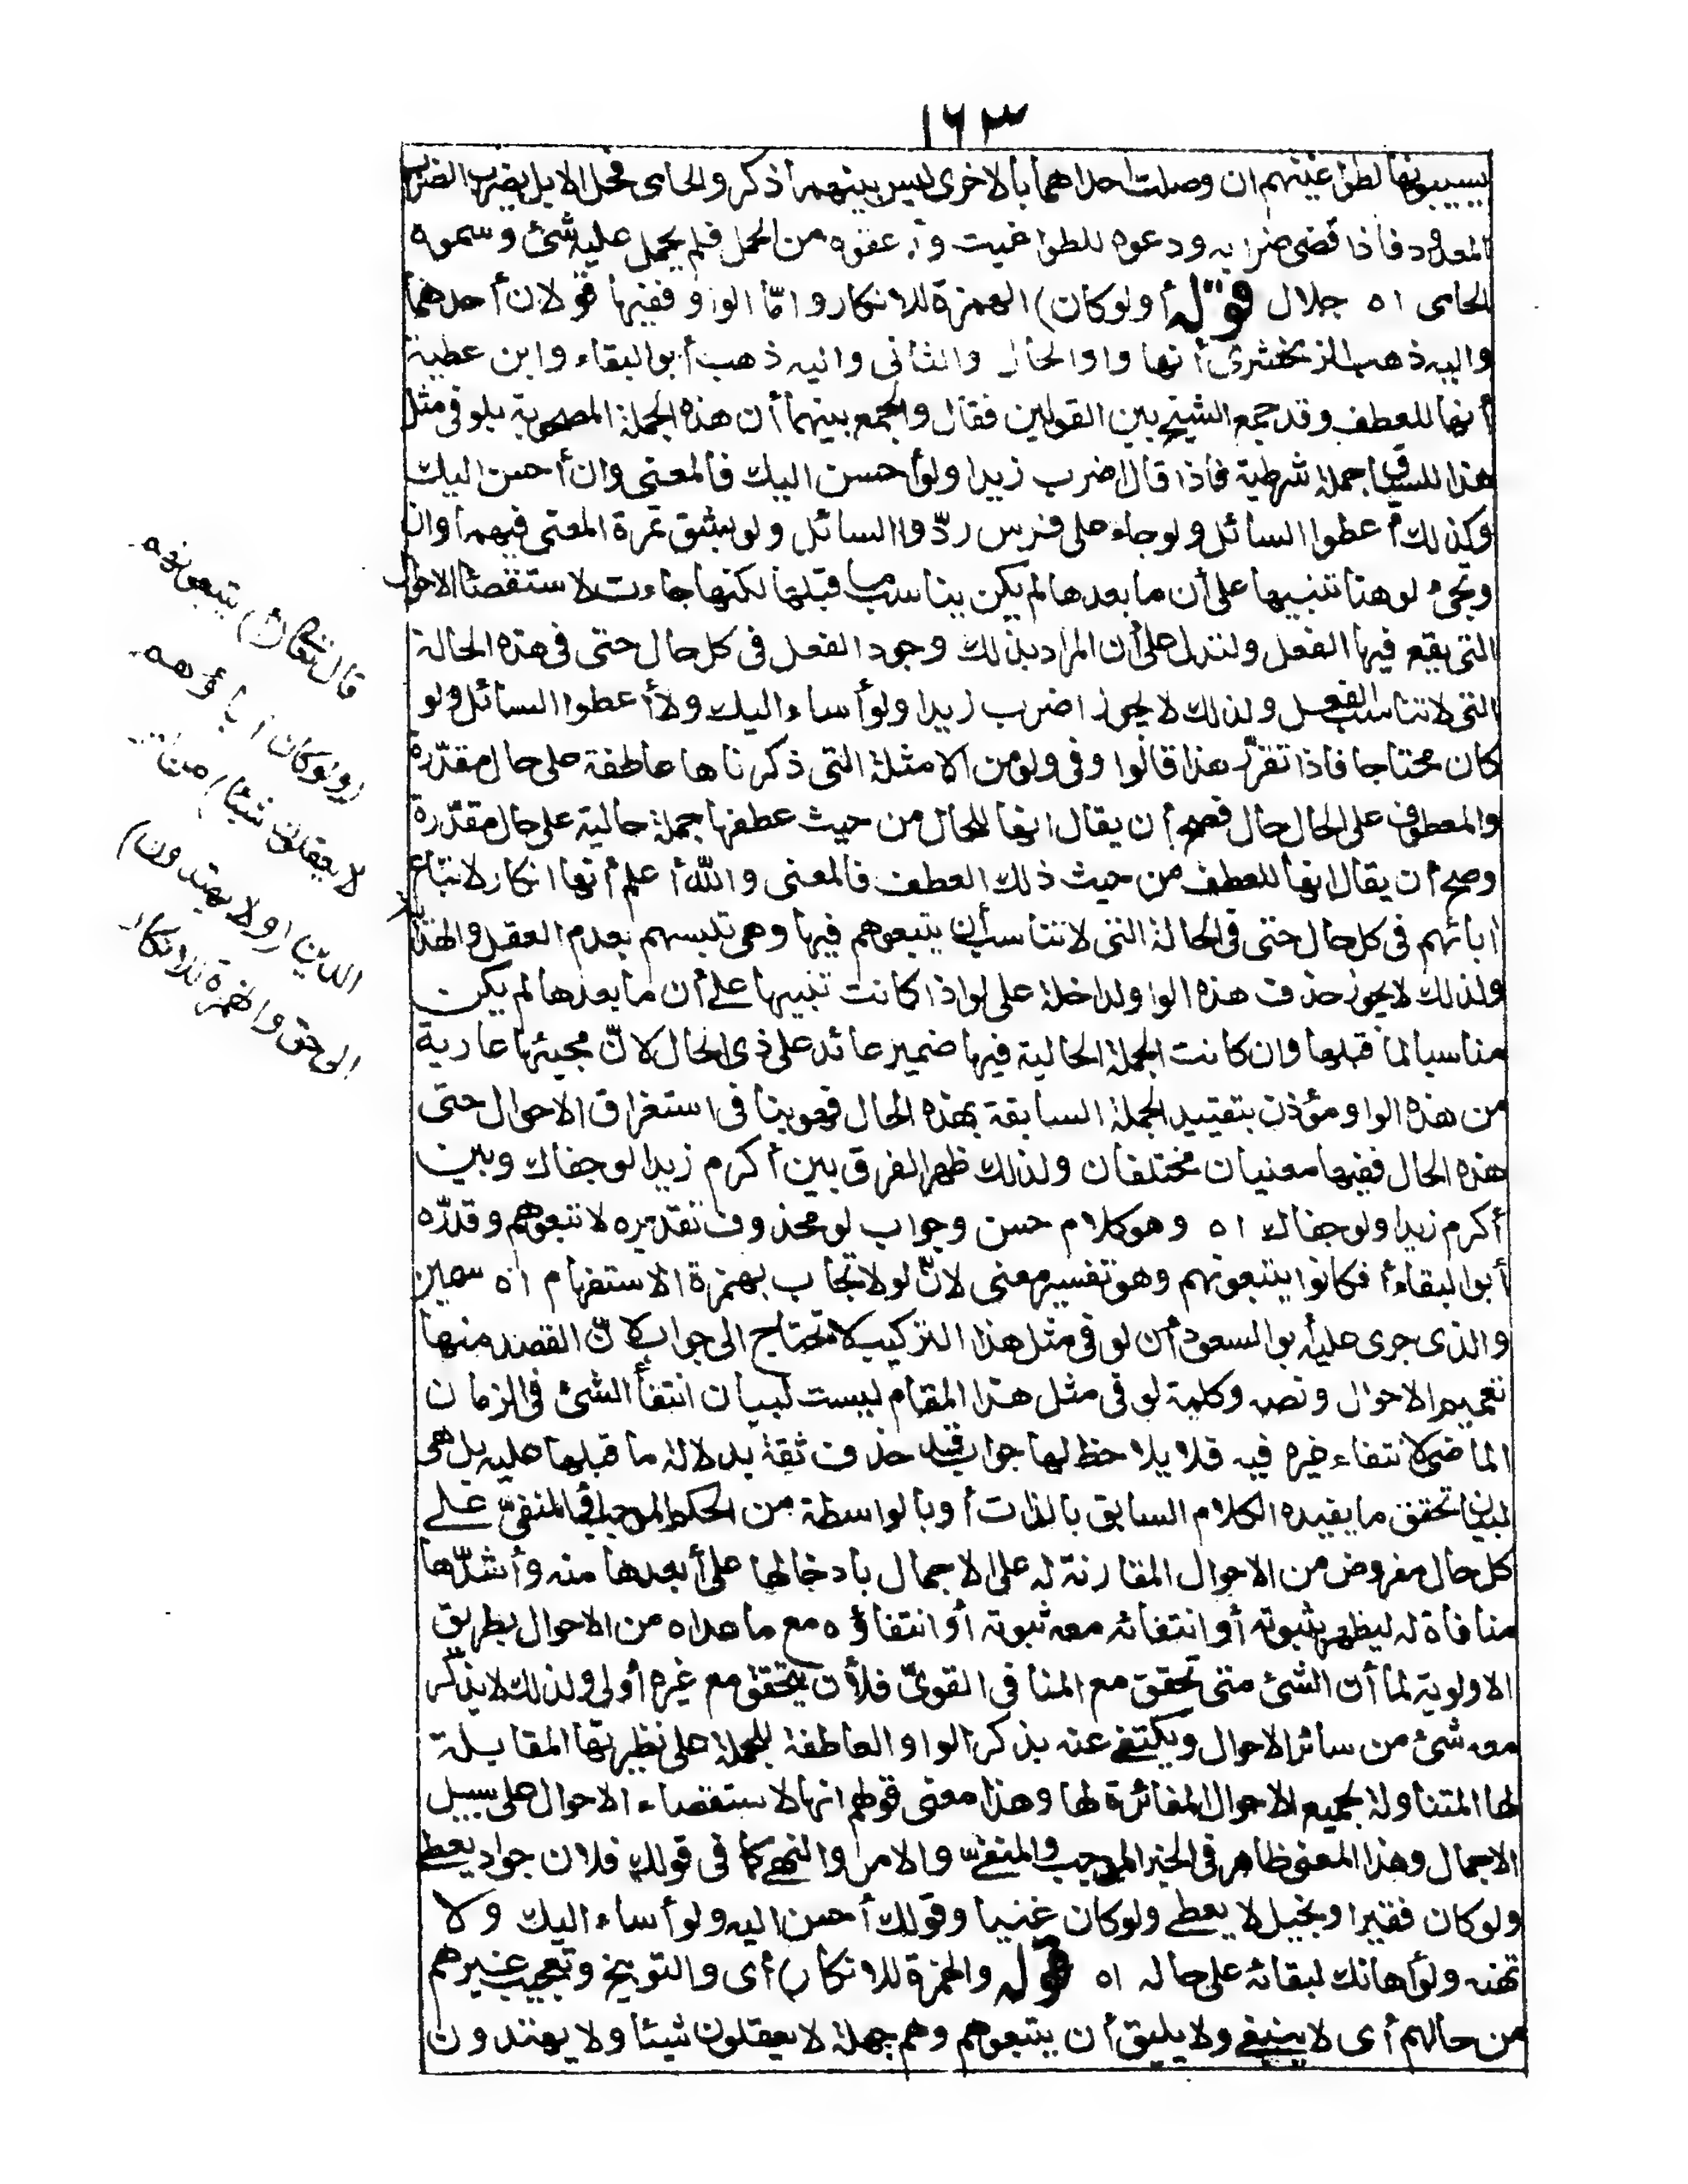 ١٦٣
يسيبونها لطواغيتهم ان وصلت احداهما بالاخرى ليس بينهما ذكر والحامى فحل الابل يضرب الضراب
المعدود فاذا قضى ضرابه ودعوه للطواغيت و عفوه من الحمل فلم يحمل عليه شئ وسموه
الحامى اه جلال قوله أولوكان) الهمزة للانكار وامّا الواو ففيها قولان أحدهما
واليه ذهب الزمخشرى أنها واو الحال والثانى واليه ذهب أبو البقاء وابن عطية
أنها للعطف وقد جمع الشيخ بين القولين فقال والجمع بينهما أن هذه الجملة المصحوبة بلو فى مثل
هذا السياق جملة شرطية فاذا قال اضرب زيدا ولو أحسن اليك فالمعنى وان أحسن اليك
وكذلك أعطوا السائل ولو جاء على فرس ردّوا السائل ولو بشق تمرة المعنى فيهما وان
وتجئ لو هنا تنبيها على أن ما بعدها لم يكن يناسب ما قبلها لكنها جاءت لاستقصاء الاحوال
التى يقع فيها الفعل ولتدل على أن المراد بذلك وجود الفعل فى كل حال حتى فى هذه الحالة
التى لا تناسب الفعل ولذلك لا يجوز اضرب زيدا ولو أساء اليك ولا أعطوا السائل ولو
كان محتاجا فاذا تقرّر هذا قالوا وفى ولو من الامثلة التى ذكرناها عاطفة على حال مقدّرة
والمعطوف على الحال حال فصح أن يقال انها للحال من حيث عطفها جملة حالية على حال مقدّرة
وصح أن يقال انها للعطف من حيث ذلك العطف فالمعنى والله أعلم أنها انكار لاتباع
ابائهم فى كل حال حتى فى الحالة التى لا تناسب أن يتبعوهم فيها وهى تلبسهم بعدم العقل والهداية
ولذلك لا يجوز حذف هذه الواو لداخلة على لو اذا كانت تنبيها على أن ما بعدها لم يكن
مناسبا لما قبلها وان كانت الجملة الحالية فيها ضمير عائد على ذى الحال لانّ مجيئها عارية
من هذه الواو مؤذن بتقييد الجملة السابقة بهذه الحال فهو ينافى استغراق الاحوال حتى
هذه الحال ففيها معنيان مختلفان ولذلك ظهر الفرق بين أكرم زيدا لو جفاك وبين
أكرم زيدا ولو جفاك اه وهو كلام حسن وجواب لو محذوف تقديره لا تبعوهم وقدّره
أبو البقاء أفكانوا يتبعونهم وهو تفسير معنى لانّ لو لا تجاب بهمزة الاستفهام اه سمين
والذى جرى عليه أبو السعود أن لو فى مثل هذا التركيب لا تحتاج الى جواب لانّ القصد منها
تعميم الاحوال ونصه وكلمة لو فى مثل هذا المقام ليست لبيان انتفاء الشئ فى الزمان
الماضى لانتفاء غيره فيه فلا يلاحظ لها جواب قد حذف ثقة بدلالة ما قبلها عليه بل هى
لبيان تحقق ما يفيده الكلام السابق بالذات أو بالواسطة من الحكم الموجب أو المنفىّ على
كل حال مفروض من الاحوال المقارنة له على الاجمال بادخالها على أبعدها منه وأشدّها
منافاة له ليظهر بثبوته أو انتفائه معه ثبوته أو انتفاؤه مع ما عداه من الاحوال بطريق
الاولوية لما أن الشئ متى تحقق مع المنافى القوىّ فلأن يتحقق مع غيره أولى ولذلك لا يذكر
معه شئ من سائر الاحوال ويكتفى عنه بذكر الواو العاطفة للجملة على نظيرتها المقابلة
لها المتناولة لجميع الاحوال المغائرة لها وهذا معنى قولهم انها لاستقصاء الاحوال على سبيل
الاجمال وهذا المعنى ظاهر فى الخبر الموجب والمنفىّ والامر والنهى كما فى قولك فلان جواد يعطى
ولو كان فقيرا وبخيل لا يعطى ولو كان غنيا وقولك أحسن اليه ولو أساء اليك ولا
تهنه ولو أهانك لبقائه على حاله اه قوله والهمزة للانكار) أى والتوبيخ وتعجيب غيرهم
من حالهم أى لا ينبغى ولا يليق أن يتبعوهم وهم جهلة لا يعقلون شيئا ولا يهتدون
قال تعالى) يتبعونهم
(ولو كان اباؤهم
لا يعقلون شيئا) من أمر
الدين (ولا يهتدون)
الى حق والهمزة للانكار